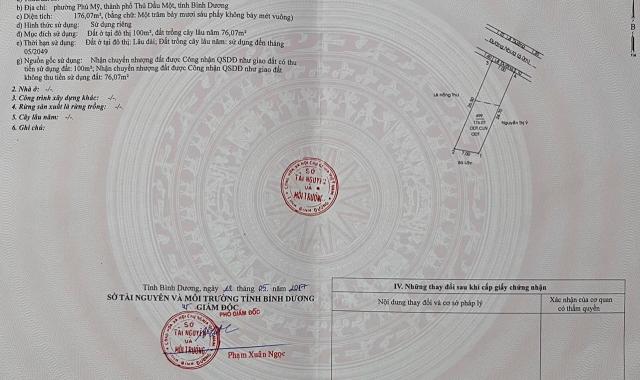 b) Địa chỉ: phường Phú Mỹ, thành phố Thủ Dầu Một, tỉnh Bình Dương
c) Diện tích: 176,07m², (bằng chữ: Một trăm bảy mươi sáu phẩy không bảy mét vuông)
d) Hình thức sử dụng: Sử dụng riêng
đ) Mục đích sử dụng: Đất ở tại đô thị 100m², đất trồng cây lâu năm 76,07m²
e) Thời hạn sử dụng: Đất ở tại đô thị: Lâu dài; Đất trồng cây lâu năm: sử dụng đến tháng
05/2049
g) Nguồn gốc sử dụng: Nhận chuyển nhượng đất được Công nhận QSDĐ như giao đất có thu
tiền sử dụng đất: 100m²; Nhận chuyển nhượng đất được Công nhận QSDĐ như giao đất
không thu tiền sử dụng đất: 76,07m²
2. Nhà ở: -/-
3. Công trình xây dựng khác: -/-
4. Rừng sản xuất là rừng trồng: -/-
5. Cây lâu năm: -/-
6. Ghi chú:
B
Lê Hồng Thu
Nguyễn Thị Ý
176.07
7.00
SỞ
TÀI NGUYÊN
VÀ
MÔI TRƯỜNG
Tỉnh Bình Dương, ngày tháng 05 năm 2017
SỞ TÀI NGUYÊN VÀ MÔI TRƯỜNG TỈNH BÌNH DƯƠNG
GIÁM ĐỐC
PHÓ GIÁM ĐỐC
SỞ
TÀI NGUYÊN
VÀ
MÔI TRƯỜNG
Phạm Xuân Ngọc
IV. Những thay đổi sau khi cấp giấy chứng nhận
Nội dung thay đổi và cơ sở pháp lý
Xác nhận của cơ quan
có thẩm quyền